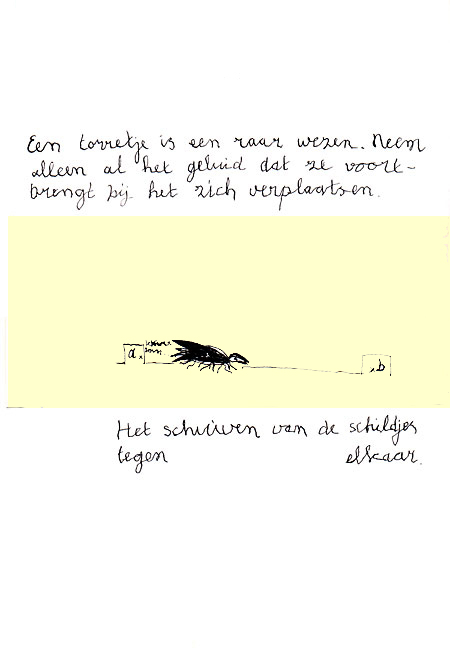 Een torretje is een raar wezen. Neem
alleen al het geluid dat ze voort-
brengt bij het zich verplaatsen.
a.
b
Het schuiven van de schildjes
tegen elkaar.